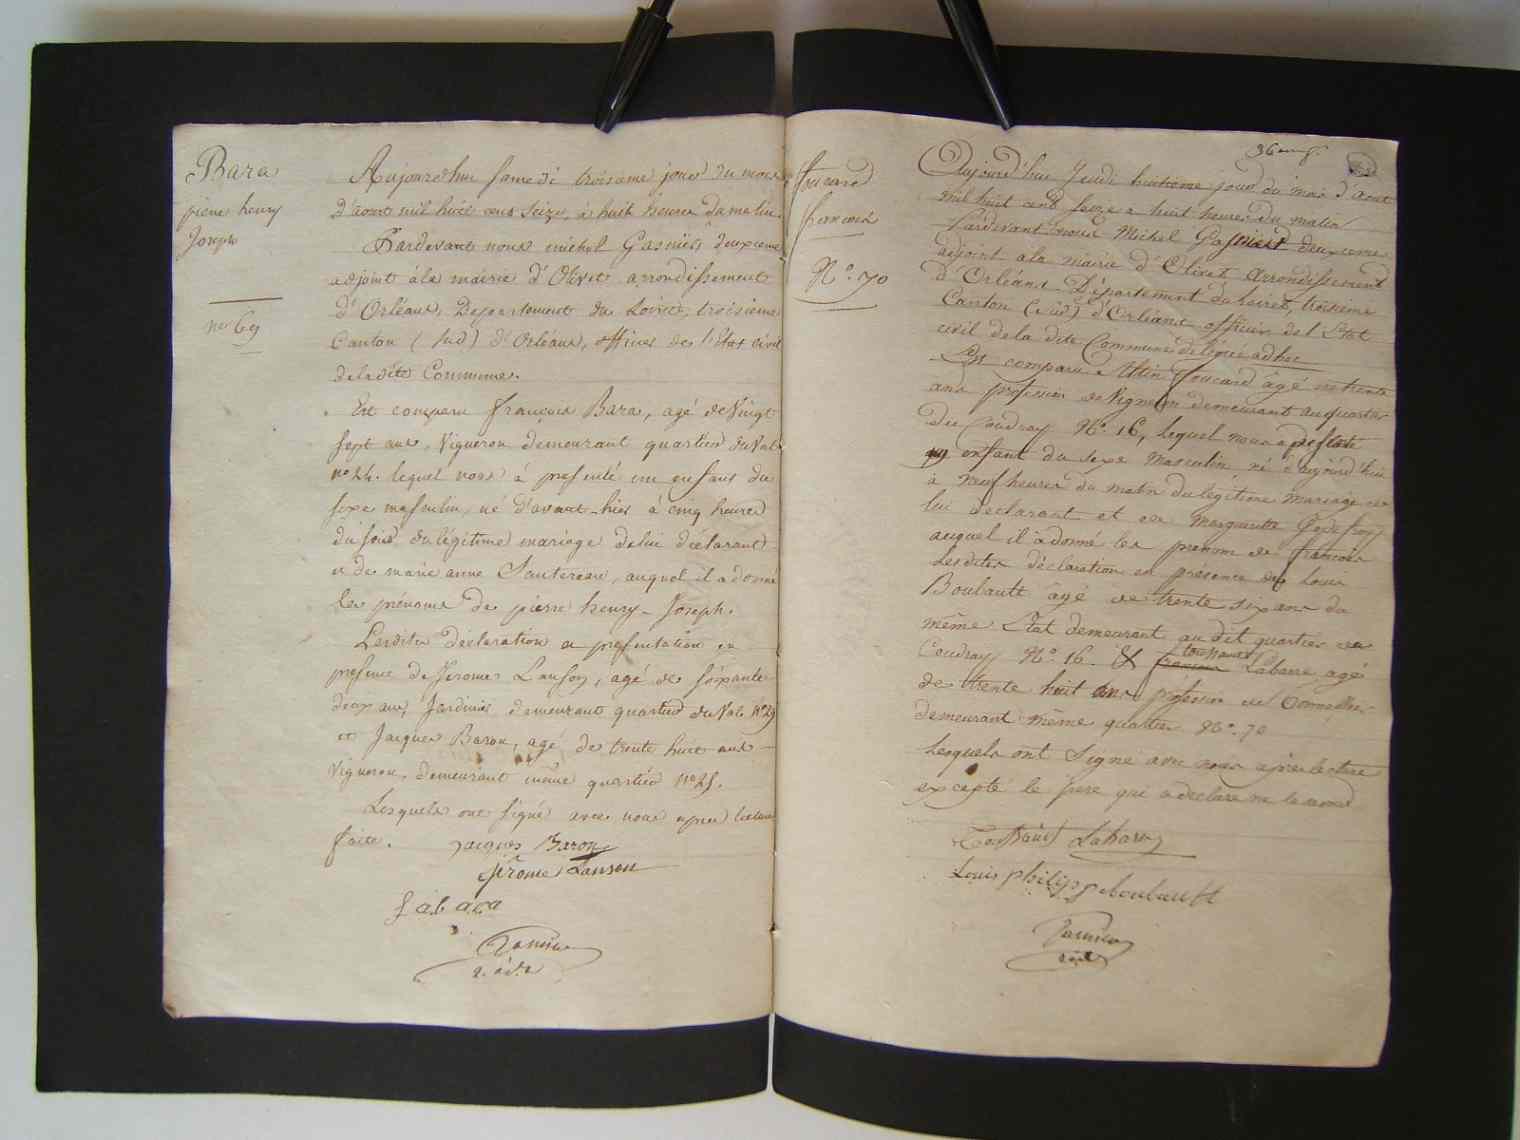 Bara
pierre henry
Joseph
no 69
Aujourd'hui samedi troisieme jour du mois
d'aout mil huit cens seize, à huit heures du matin.
Pardevant nous michel Gasnier deuxieme
adjoint à la mairie d'Olivet arrondissement
d'Orléans, Departement du Loiret, troisieme
Canton (sud) d'Orléans, officier de l'état civil
de la dite Commune.
Est comparu françois Bara, agé de Vingt
sept ans, Vigneron demeurant quartier du Val
no 24. lequel nous à presenté un enfant du
sexe masculin, né d'avant-hier à cinq heures
du soir du légitime mariage de lui déclarant
et de marie anne Sautereau, auquel il a donné
les prénoms de pierre henry-Joseph.
Lesdites déclaration et presentation en
presence de Jerome Lanson, agé de soixante
deux ans, Jardinier demeurant quartier du Val no 29
et Jacques Baron, agé de trente huit ans
Vigneron, demeurant même quartier no 25.
Lesquels ont signé avec nous apres lecture
faite.
Jacques Baron
Jérome Lanson
f a b a r a
Gasnier
foucard
francois
No. 70
Aujourd'hui Jeudi huitieme jour du mois d'aout
mil huit cent seize a huit heures du matin
Pardevant nous Michel Gasnier deuxieme
adjoint a la mairie d'Olivet Arrondissement
d'Orléans Département du Loiret, troisieme
Canton (sud) d'Orléans officier de l'Etat
civil de la dite Commune délégué adhoc
Est comparu foucard âgé de trente
ans profession de Vigneron demeurant au quartier
du Coudray No. 16, lequel nous a présenté
un enfant du sexe masculin né d'aujourd'hui
à neuf heures du matin du légitime mariage de
lui declarant et de Marguerite Godefroy
auquel il à donné les prénom de francois
Lesdites déclaration en présence de Louis
Boulault âgé de trente six ans du
même Etat demeurant au dit quartier du
Coudray No. 16. & francois toussaint Labarre agé
de trente huit ans profession de Tonnellier
demeurant même quartier No. 70
Lesquels ont Signé avec nous après lecture
excepté le pere qui a declaré ne le savoir
Toussaint Labare
Louis philippe boulault
Gasnier